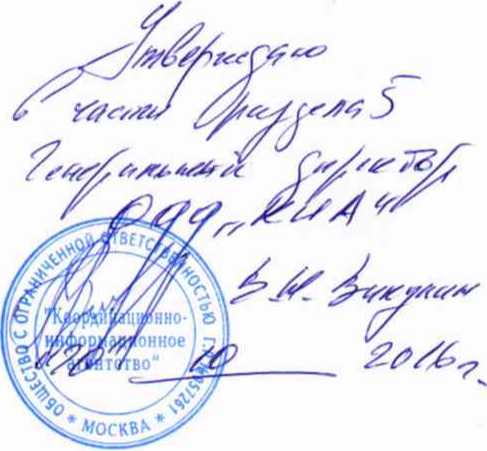 Утверждаю
в части раздела 5
Генеральный директор
ООО „КИА"
В.И. Викулин
"20" 10 2016 г.
ОБЩЕСТВО С ОГРАНИЧЕННОЙ ОТВЕТСТВЕННОСТЬЮ
"Координационно-
информационное
агентство"
* МОСКВА *